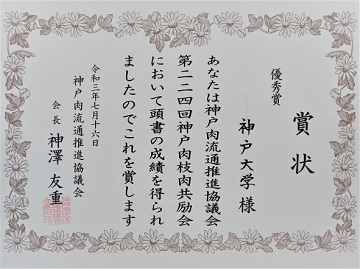 賞状
優秀賞
神戸大学様
あなたは神戸肉流通推進協議会
第二二四回神戸肉枝肉共励会
において頭書の成績を得られ
ましたのでこれを賞します
令和三年七月十六日
神戸肉流通推進協議会
会長 神澤友重